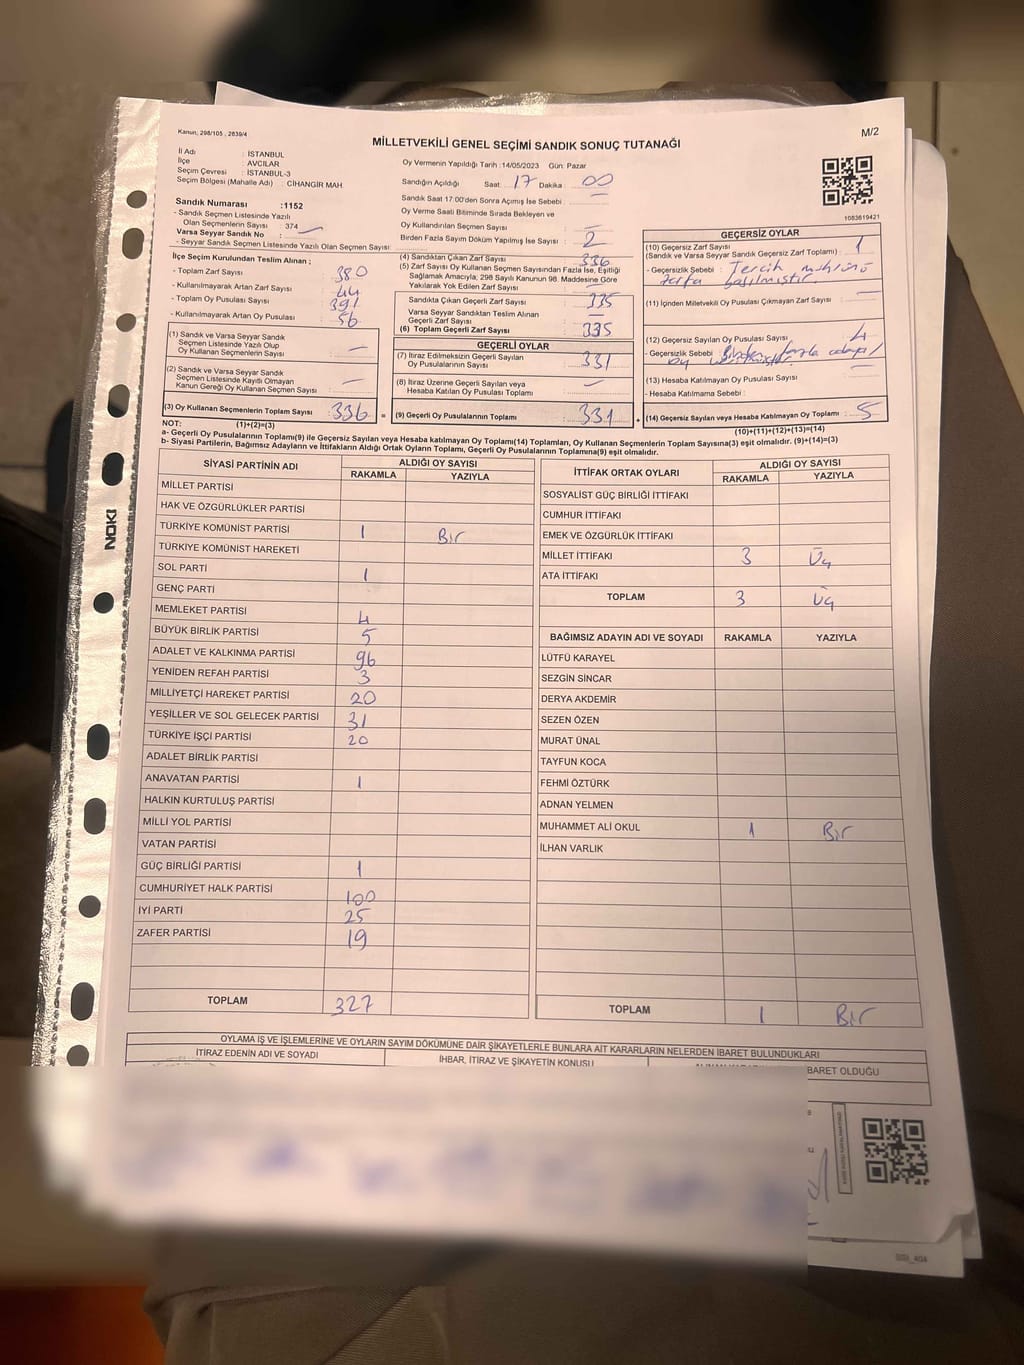 Kanun; 298/105 , 2839/4
M/2
MİLLETVEKİLİ GENEL SEÇİMİ SANDIK SONUÇ TUTANAĞI
İl Adı : İSTANBUL
İlçe : AVCILAR
Seçim Çevresi : İSTANBUL-3
Seçim Bölgesi (Mahalle Adı) : CİHANGİR MAH.
Sandık Numarası :1152
- Sandık Seçmen Listesinde Yazılı
Olan Seçmenlerin Sayısı : 374
Varsa Seyyar Sandık No :
- Seyyar Sandık Seçmen Listesinde Yazılı Olan Seçmen Sayısı:
Oy Vermenin Yapıldığı Tarih :14/05/2023 Gün: Pazar
Sandığın Açıldığı Saat: 17 Dakika : 00
Sandık Saat 17.00'den Sonra Açımış İse Sebebi :
Oy Verme Saati Bitiminde Sırada Bekleyen ve
Oy Kullandırılan Seçmen Sayısı : —
Birden Fazla Sayım Döküm Yapılmış İse Sayısı : 2
1083619421
İlçe Seçim Kurulundan Teslim Alınan ;
- Toplam Zarf Sayısı : 380
- Kullanılmayarak Artan Zarf Sayısı : 44
- Toplam Oy Pusulası Sayısı : 391
- Kullanılmayarak Artan Oy Pusulası : 56
(1) Sandık ve Varsa Seyyar Sandık
Seçmen Listesinde Yazılı Olup
Oy Kullanan Seçmenlerin Sayısı : —
(2) Sandık ve Varsa Seyyar Sandık
Seçmen Listesinde Kayıtlı Olmayan
Kanun Gereği Oy Kullanan Seçmen Sayısı : —
(3) Oy Kullanan Seçmenlerin Toplam Sayısı : 336
(1)+(2)=(3)
(4) Sandıktan Çıkan Zarf Sayısı : 336
(5) Zarf Sayısı Oy Kullanan Seçmen Sayısından Fazla İse, Eşitliği
Sağlamak Amacıyla, 298 Sayılı Kanunun 98. Maddesine Göre
Yakılarak Yok Edilen Zarf Sayısı :
Sandıkta Çıkan Geçerli Zarf Sayısı : 335
Varsa Seyyar Sandıktan Teslim Alınan
Geçerli Zarf Sayısı : —
(6) Toplam Geçerli Zarf Sayısı : 335
GEÇERLİ OYLAR
(7) İtiraz Edilmeksizin Geçerli Sayılan
Oy Pusulalarının Sayısı : 331
(8) İtiraz Üzerine Geçerli Sayılan veya
Hesaba Katılan Oy Pusulası Toplamı : —
(9) Geçerli Oy Pusulalarının Toplamı : 331
GEÇERSİZ OYLAR
(10) Geçersiz Zarf Sayısı : 1
(Sandık ve Varsa Seyyar Sandık Geçersiz Zarf Toplamı)
- Geçersizlik Sebebi : Tercih mührünü
zarfa basılmıştır.
(11) İçinden Milletvekili Oy Pusulası Çıkmayan Zarf Sayısı :
(12) Geçersiz Sayılan Oy Pusulası Sayısı : 4
- Geçersizlik Sebebi : Birden fazla
oy
(13) Hesaba Katılmayan Oy Pusulası Sayısı :
- Hesaba Katılmama Sebebi :
(14) Geçersiz Sayılan veya Hesaba Katılmayan Oy Toplamı : 5
(10)+(11)+(12)+(13)=(14)
NOT:
a- Geçerli Oy Pusulalarının Toplamı(9) ile Geçersiz Sayılan veya Hesaba katılmayan Oy Toplamı(14) Toplamları, Oy Kullanan Seçmenlerin Toplam Sayısına(3) eşit olmalıdır. (9)+(14)=(3)
b- Siyasi Partilerin, Bağımsız Adayların ve İttifakların Aldığı Oy Ortak Oyların Toplamı, Geçerli Oy Pusulalarının Toplamına(9) eşit olmalıdır.
SİYASİ PARTİNİN ADI ALDIĞI OY SAYISI
RAKAMLA YAZIYLA
MİLLET PARTİSİ
HAK VE ÖZGÜRLÜKLER PARTİSİ
TÜRKİYE KOMÜNİST PARTİSİ 1 Bir
TÜRKİYE KOMÜNİST HAREKETİ
SOL PARTİ 1
GENÇ PARTİ
MEMLEKET PARTİSİ 4
BÜYÜK BİRLİK PARTİSİ 5
ADALET VE KALKINMA PARTİSİ 96
YENİDEN REFAH PARTİSİ 3
MİLLİYETÇİ HAREKET PARTİSİ 20
YEŞİLLER VE SOL GELECEK PARTİSİ 31
TÜRKİYE İŞÇİ PARTİSİ 20
ADALET BİRLİK PARTİSİ
ANAVATAN PARTİSİ 1
HALKIN KURTULUŞ PARTİSİ
MİLLİ YOL PARTİSİ
VATAN PARTİSİ
GÜÇ BİRLİĞİ PARTİSİ 1
CUMHURİYET HALK PARTİSİ 100
İYİ PARTİ 25
ZAFER PARTİSİ 19
TOPLAM 327
İTTİFAK ORTAK OYLARI ALDIĞI OY SAYISI
RAKAMLA YAZIYLA
SOSYALİST GÜÇ BİRLİĞİ İTTİFAKI
CUMHUR İTTİFAKI
EMEK VE ÖZGÜRLÜK İTTİFAKI
MİLLET İTTİFAKI 3 Üç
ATA İTTİFAKI
TOPLAM 3 Üç
BAĞIMSIZ ADAYIN ADI VE SOYADI RAKAMLA YAZIYLA
LÜTFÜ KARAYEL
SEZGİN SİNCAR
DERYA AKDEMİR
SEZEN ÖZEN
MURAT ÜNAL
TAYFUN KOCA
FEHMİ ÖZTÜRK
ADNAN YELMEN
MUHAMMET ALİ OKUL 1 Bir
İLHAN VARLIK
TOPLAM 1 Bir
OYLAMA İŞ VE İŞLEMLERİNE VE OYLARIN SAYIM DÖKÜMÜNE DAİR ŞİKAYETLERLE BUNLARA AİT KARARLARIN NELERDEN İBARET BULUNDUKLARI
İTİRAZ EDENİN ADI VE SOYADI İHBAR, İTİRAZ VE ŞİKAYETİN KONUSU
BARET OLDUĞU
NOKI